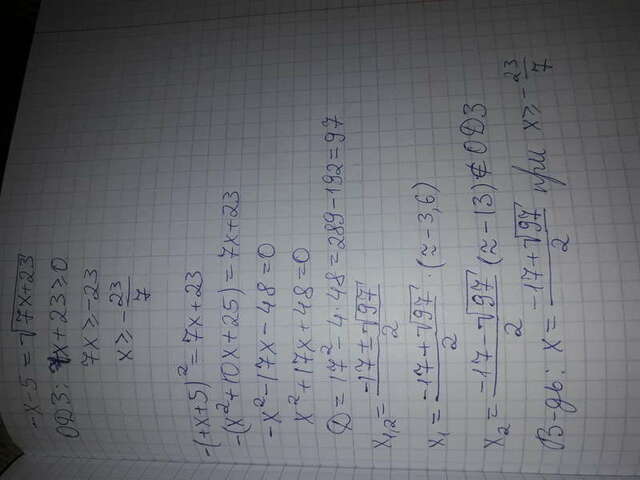 -x-5 = √7x+23
ОДЗ: 7x+23≥0
7x ≥ -23
x ≥ -23/7
-(+x+5)² = 7x+23
-(x²+10x+25) = 7x+23
-x²-17x-48=0
x²+17x+48=0
D = 17²-4·48=289-192=97
x1,2 = -17±√97/2
x1 = -17+√97/2 · (≈ -3,6)
x2 = -17-√97/2 (≈ -13) ∉ ОДЗ
В-дь: x = -17+√97/2 при x ≥ -23/7